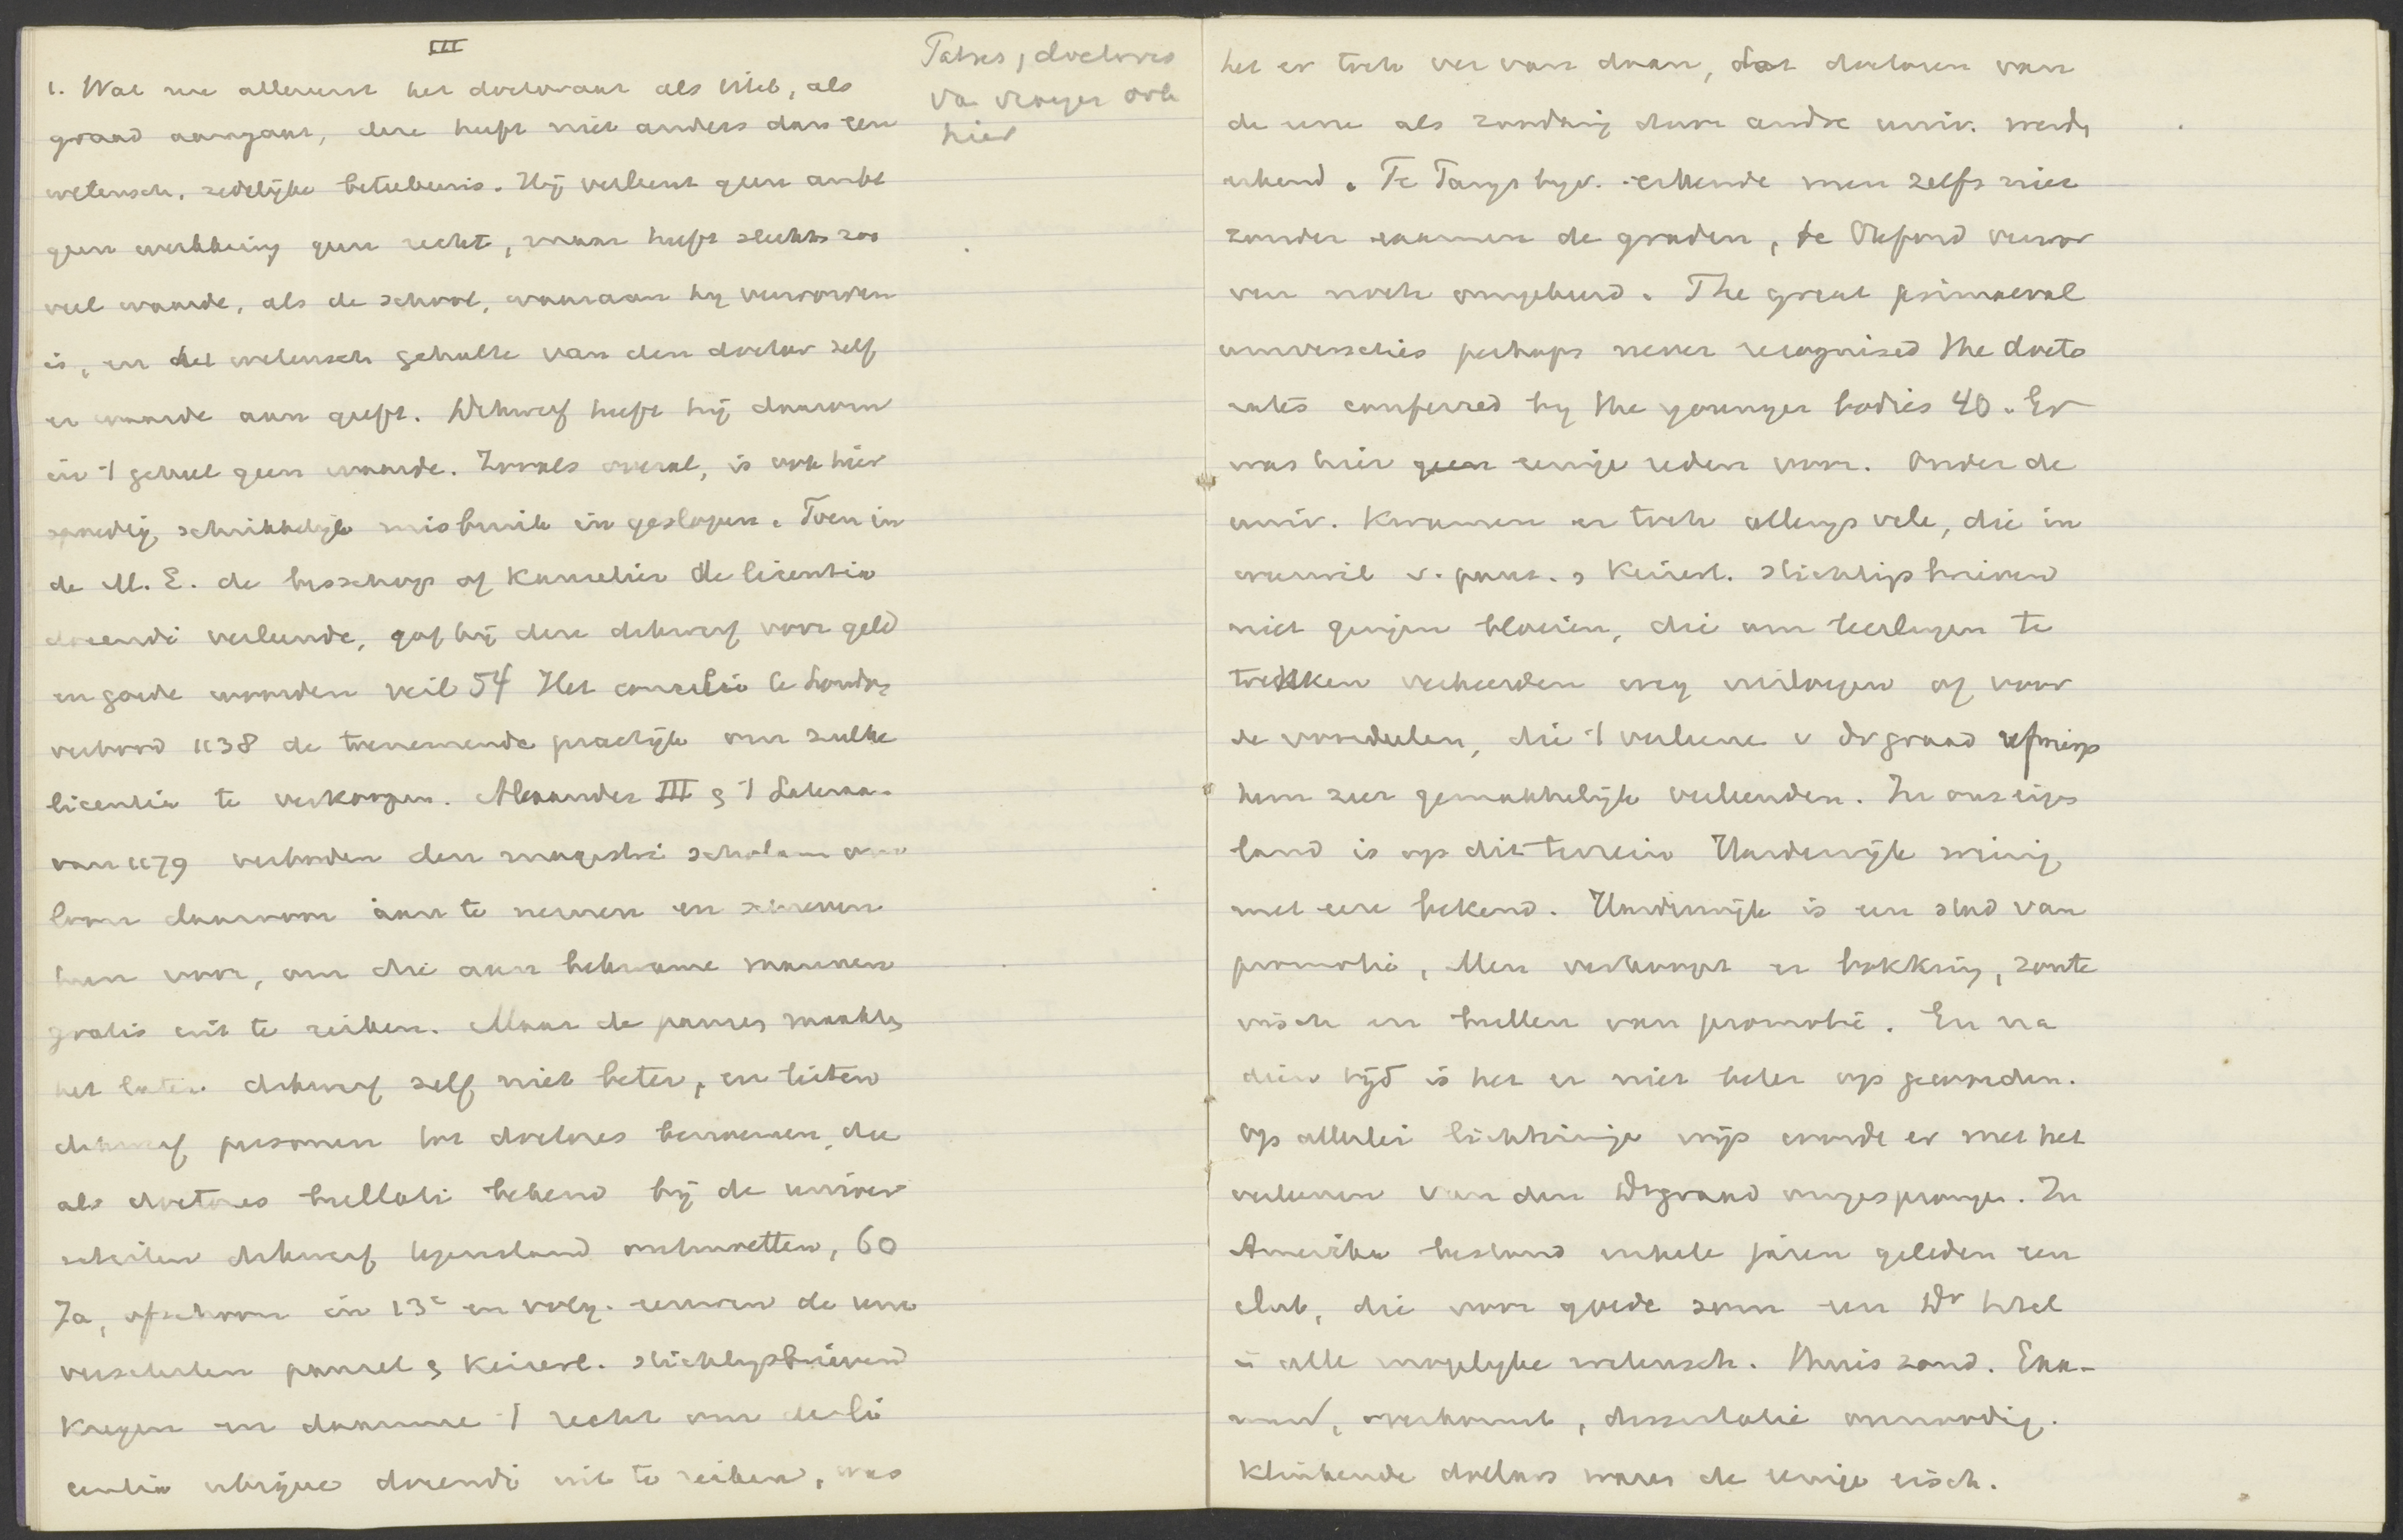 III
1. Wat nu allereerst het doctoraat als titel, als
graad aangaat, deze heeft niet anders dan een
wetensch. zedelijke beteekenis. Hij verleent geen ambt
geen werkkring geen recht, maar heeft slechts zoo
veel waarde, als de school, waaraan hij verworven
is, en het wetensch gehalte van den doctor zelf
er waarde aan geeft. Dikwerf heeft hij daarom
in 't geheel geen waarde. Zooals overal, is ook hier
spoedig schrikkelijk misbruik in geslopen. Toen in
de M. E. de bisschop of kanselier de licentia
docendi verleende, gaf hij deze dikwerf voor geld
en goede woorden veil 54 Het concilie te Londen
verbood 1138 de toenemende practijk om zulke
licentia te verkoopen. Alexander III & 't Latera-
van 1179 verboden den magistri scholarum om
loon daarvoor aan te nemen en schreven
hun voor, om die aan bekwame mannen
gratis uit te reiken. Maar de pausen maakten
het later dikwerf zelf niet beter, en lieten
dikwerf personen tot doctores benoemen, die
als doctores bullati bekend bij de univer
siteiten dikwerf tegenstand ontmoetten, 60
Ja, ofschoon in 13e en volg. eeuwen de univ
verscheiden pausel & keizerl. stichtingsbrieven
kregen en daarmee 't recht om de li
centia ubique docendi uit te reiken, was
Tatres, doctores
van vroeger ook
hier
het er toch ver van daan, dat doctoren van
de eene als zoodanig door andre univ. werden
erkend. Te Parijs bijv. erkende men zelfs niet
zonder examen de graden, te Oxford verwor
ven noch omgekeerd. The great primaeval
universities perhaps never recognised the docto
rates conferred by the younger bodies 40. Er
was hier geen eenige reden voor. Onder de
univ. kwamen er toch allengs vele, die in
weerwil v. paus. & keizerl. stichtingsbrieven
niet gingen bloeien, die om leerlingen te
trekken verkeerden weg insloegen of voor
de voordeelen, die 't verleenen v Dr graad afwierp
hem zeer gemakkelijk verleenden. In ons eigen
land is op dit terrein Harderwijk weinig
met eere bekend. Harderwijk is een stad van
promotie, Men verkoopt er bokking, zoute
visch en bullen van promotie. En na
dien tijd is het er niet beter op geworden.
Op allerlei lichtzinnige wijs wordt er met het
verleenen van den Drgraad omgesprongen. In
Amerika bestond enkele jaren geleden een
club, die voor goede som een Dr titel
in alle mogelijke wetensch. thuis zond. Exa-
men, overkomst, dissertatie onnoodig.
Klinkende dollars waren de eenige eisch.